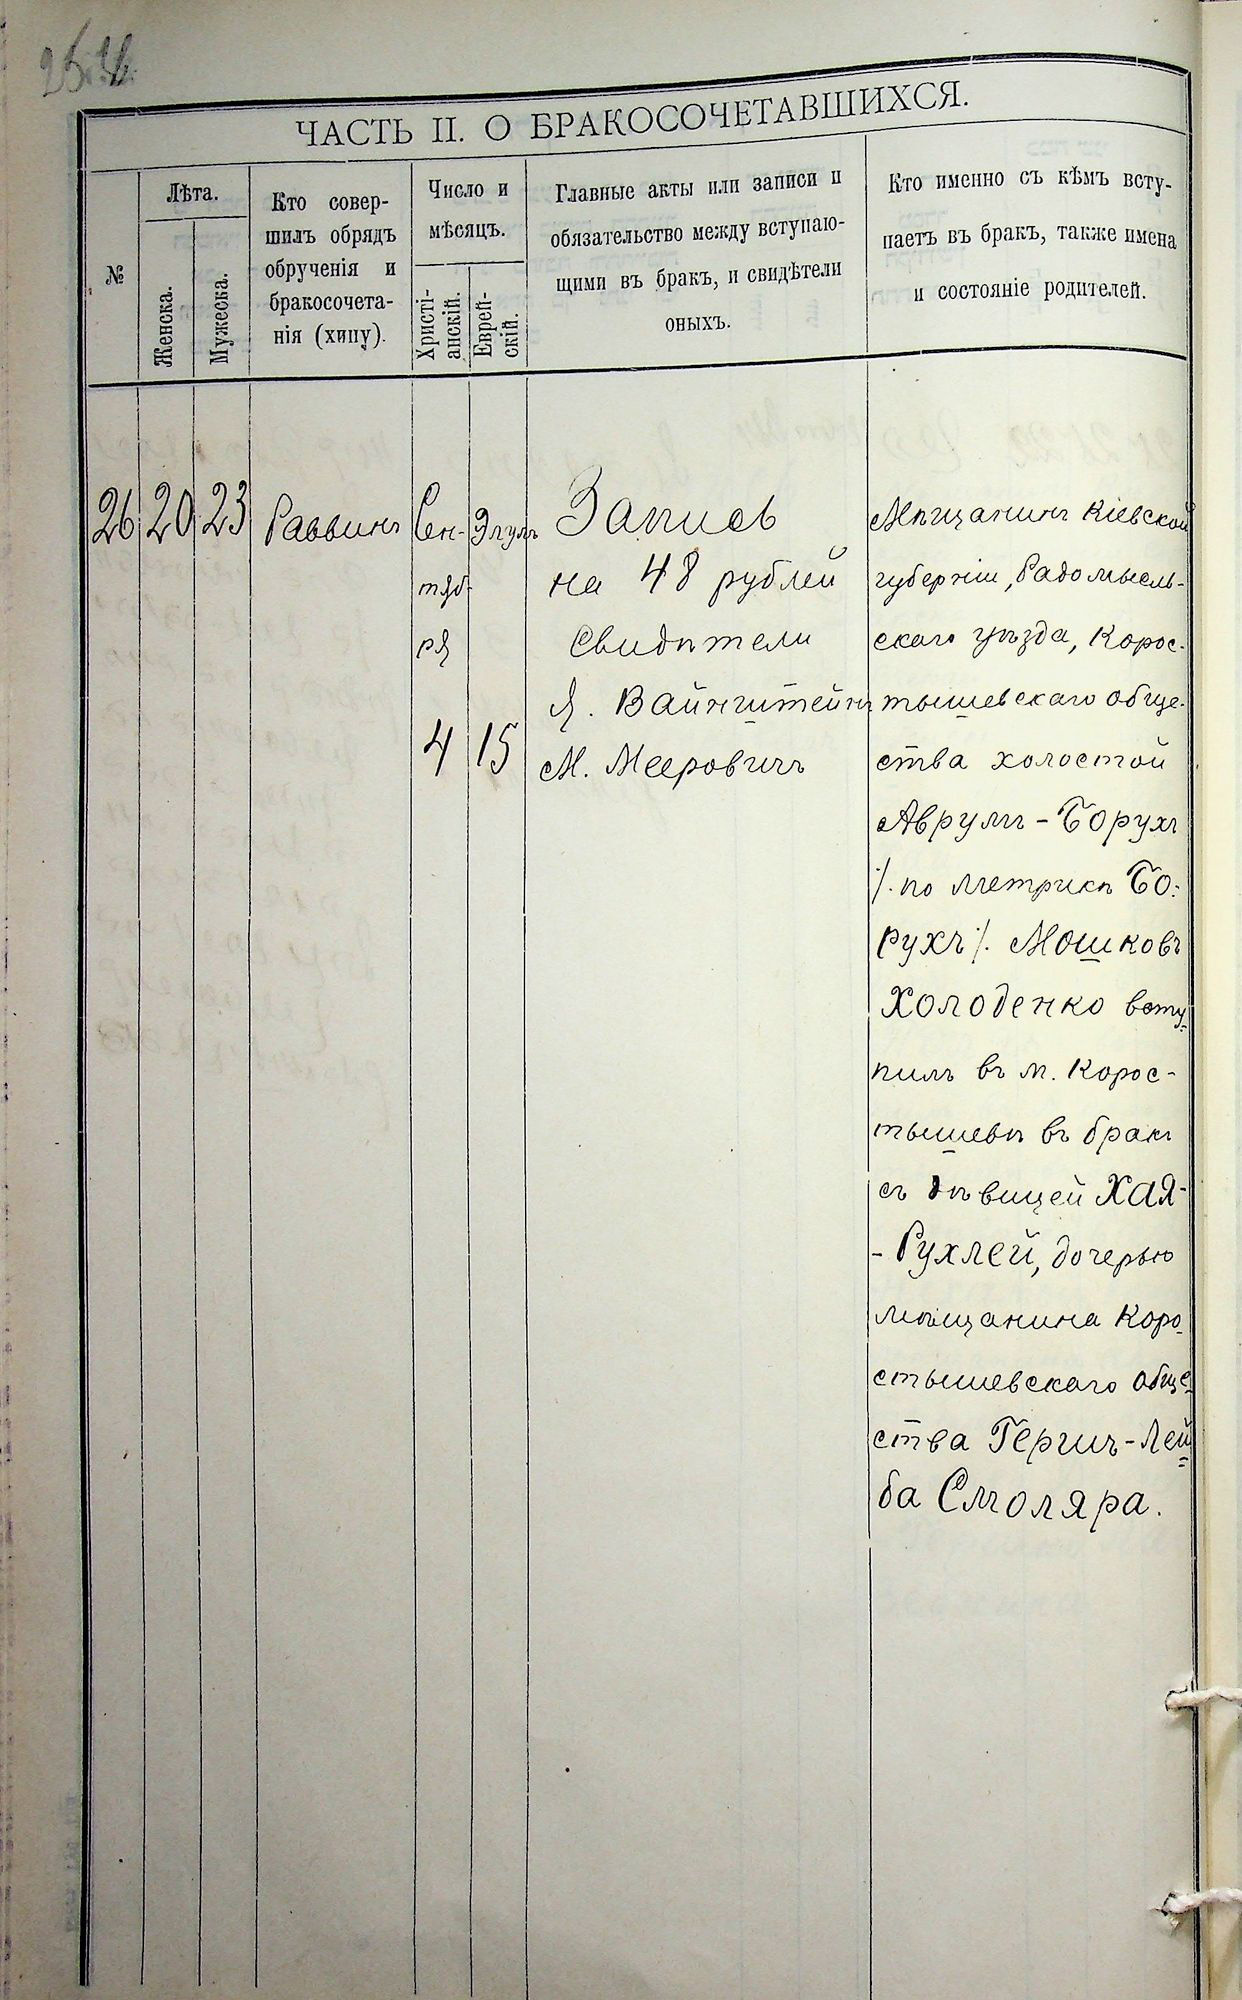 ЧАСТЬ II. О БРАКОСОЧЕТАВШИХСЯ.
№
Лѣта.
Женска.
Мужеска.
Кто совер-
шилъ обрядъ
обрученія и
бракосочета-
нія (хипу).
Число и
мѣсяцъ.
Христі-
анскій.
Еврей-
скій.
Главные акты или записи и
обязательство между вступаю-
щими въ бракъ, и свидѣтели
оныхъ.
Кто именно съ кѣмъ всту-
паетъ въ бракъ, также имена
и состояніе родителей.
26
20
23
Раввинъ
Сен-
тяб-
ря
4
Элулъ
15
Запись
на 48 рублей
Свидѣтели
Я. Вайнштейнъ
М. Мееровичъ
Мѣщанинъ Кіевской
губерніи, Радомысль-
скаго уѣзда, Корос-
тышевскаго обще-
ства холостой
Аврумъ-Борухъ
/. по метрикѣ Бо-
рухъ /. Мошковъ
Холоденко всту-
пилъ въ м. Корос-
тышевѣ въ бракъ
съ дѣвицей Хая-
-Рухлей, дочерью
мѣщанина Коро-
стышевскаго обще-
ства Гершъ-Лей-
ба Смоляра.